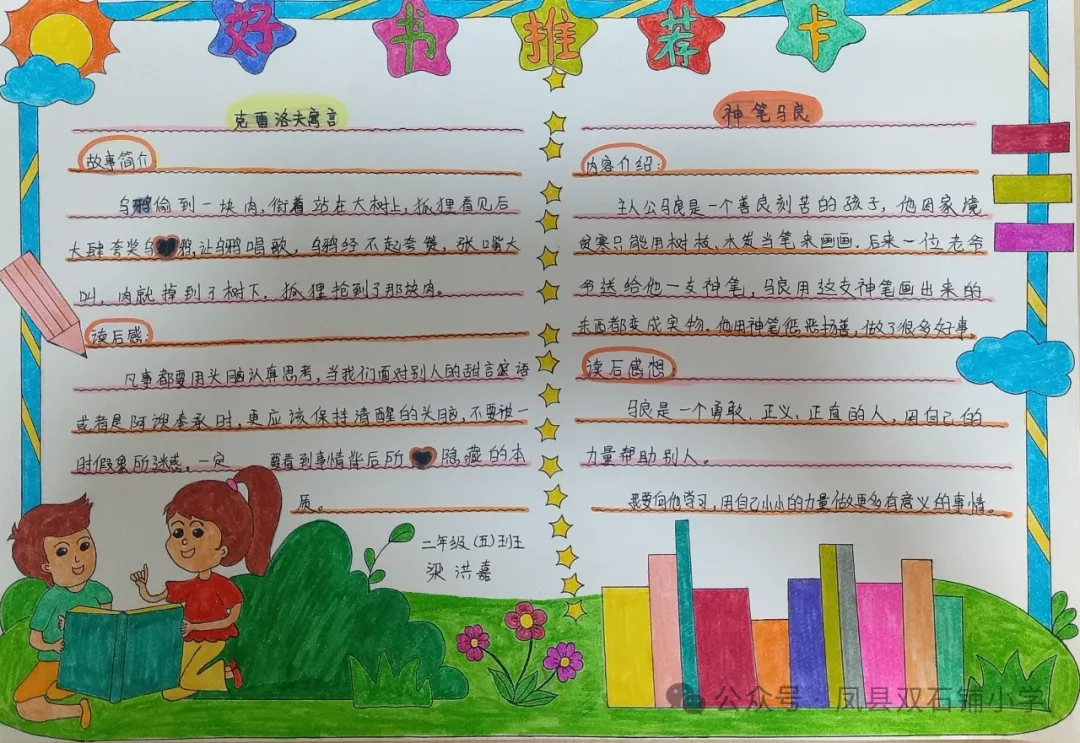 好书推荐卡
克雷洛夫寓言
故事简介:
乌鸦偷到一块肉,衔着站在大树上,狐狸看见后
大肆夸奖乌鸦,让乌鸦唱歌,乌鸦经不起夸赞,张嘴大
叫,肉就掉到了树下,狐狸抢到了那块肉。
读后感:
凡事都要用头脑认真思考,当我们面对别人的甜言蜜语
或者是阿谀奉承时,更应该保持清醒的头脑,不要被一
时假象所迷惑,一定 要看到事情背后所隐藏的本
质。
二年级(五)班王
梁洪嘉
神笔马良
内容介绍:
主人公马良是一个善良刻苦的孩子,他因家境
贫寒只能用树枝、木炭当笔来画画。后来一位老爷
爷送给他一支神笔,马良用这支神笔画出来的
东西都变成实物。他用神笔惩恶扬善,做了很多好事。
读后感想:
马良是一个勇敢、正义、正直的人,用自己的
力量帮助别人。
我要向他学习,用自己小小的力量做更多有意义的事情。
公众号·凤县双石铺小学